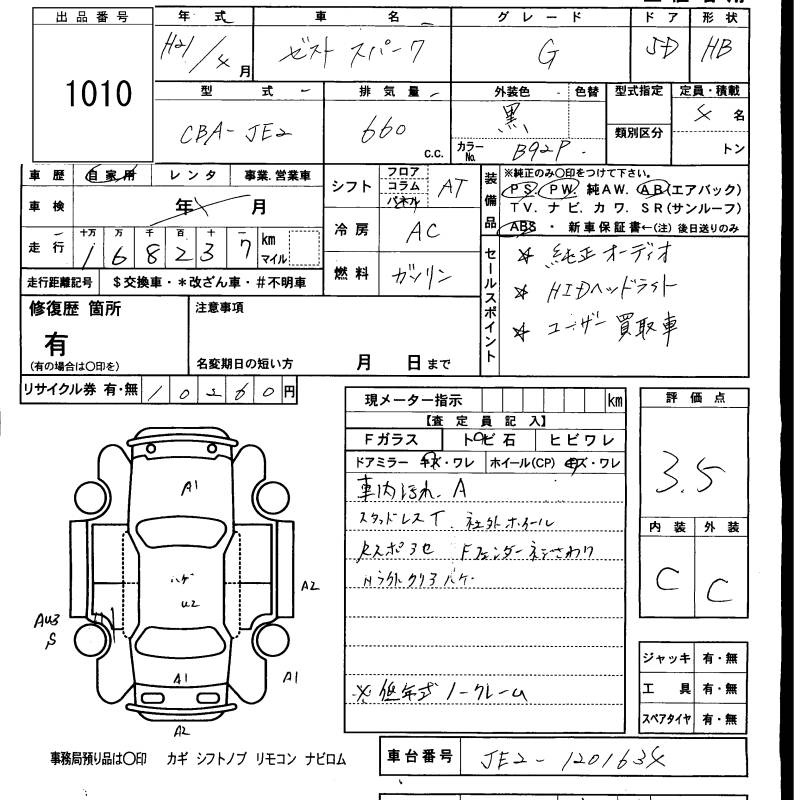 出品番号
1010
年式
H21/4月
車名
ゼスト スパーク
グレード
G
ドア
5D
形状
HB
型式
CBA-JE2
排気量
660
c.c.
外装色
黒
色替
カラーNo.
B92P
型式指定
類別区分
定員・積載
4名
トン
車歴
自家用
レンタ
事業.営業車
車検
年
月
走行
十万 万 千 百 十 一
1 6 8 2 3 7
km
マイル
シフト
フロア
コラム
パネル
AT
冷房
AC
燃料
ガソリン
装備品
※純正のみ〇印をつけて下さい。
PS. PW. 純AW. AB(エアバック)
TV. ナビ. カワ. SR(サンルーフ)
ABS ・ 新車保証書←(注)後日送りのみ
セールスポイント
☆ 純正オーディオ
☆ HIDヘッドライト
☆ ユーザー買取車
走行距離記号
$交換車・*改ざん車・#不明車
修復歴 箇所
有
(有の場合は〇印を)
注意事項
名変期日の短い方 月 日まで
リサイクル券 有・無
10260円
現メーター指示
km
【査定員記入】
Fガラス
トビ石
ヒビワレ
ドアミラー キズ・ワレ
ホイール(CP) キズ・ワレ
車内汚れ. A
スタッドレスT. 社外ホイール
Fフェンダーネジさわり
※ 低年式ノークレーム
評価点
3.5
内装
外装
C
C
ジャッキ 有・無
工具 有・無
スペアタイヤ 有・無
A1
ハゲ
U2
A2
AU3
S
A1
A1
A2
事務局預り品は〇印 カギ シフトノブ リモコン ナビロム
車台番号
JE2-1201634